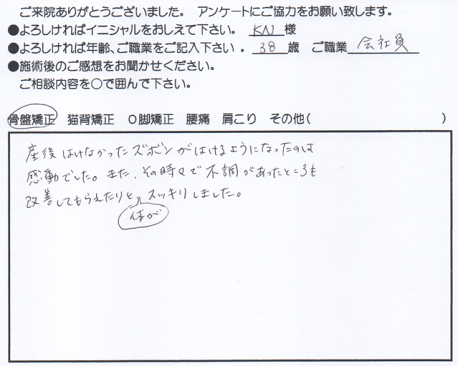 ご来院ありがとうございました。 アンケートにご協力をお願い致します。
●よろしければイニシャルをおしえて下さい。 K.N 様
●よろしければ年齢、ご職業をご記入下さい。 38 歳 ご職業 会社員
●施術後のご感想をお聞かせください。
ご相談内容を○で囲んで下さい。
骨盤矯正 猫背矯正 O脚矯正 腰痛 肩こり その他( )
産後はけなかったズボンがはけるようになったのは
感動でした。また、その時々で不調があったところも
改善してもらえたりと、スッキリしました。
体が